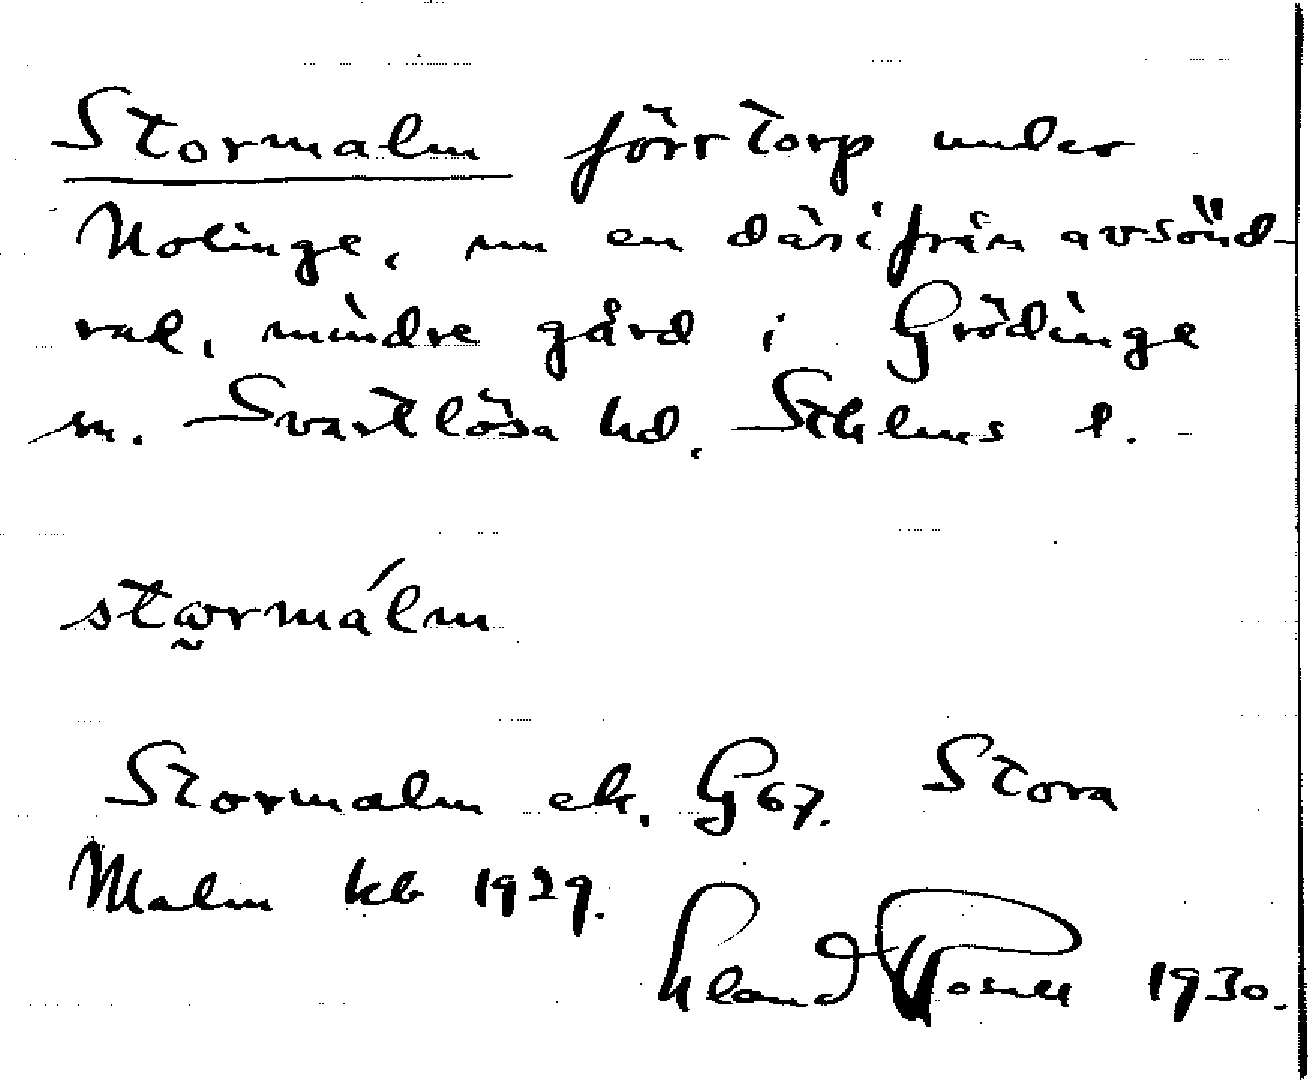 Stormalm förr torp under
Nolinge, nu en därifrån avsönd-
rad, mindre gård i Grödinge
sn. Svartlösa hd. Sthlms l. -
stɷrmálm
Stormalm ek. G67. Stora
Malm kb 1929.
1930.